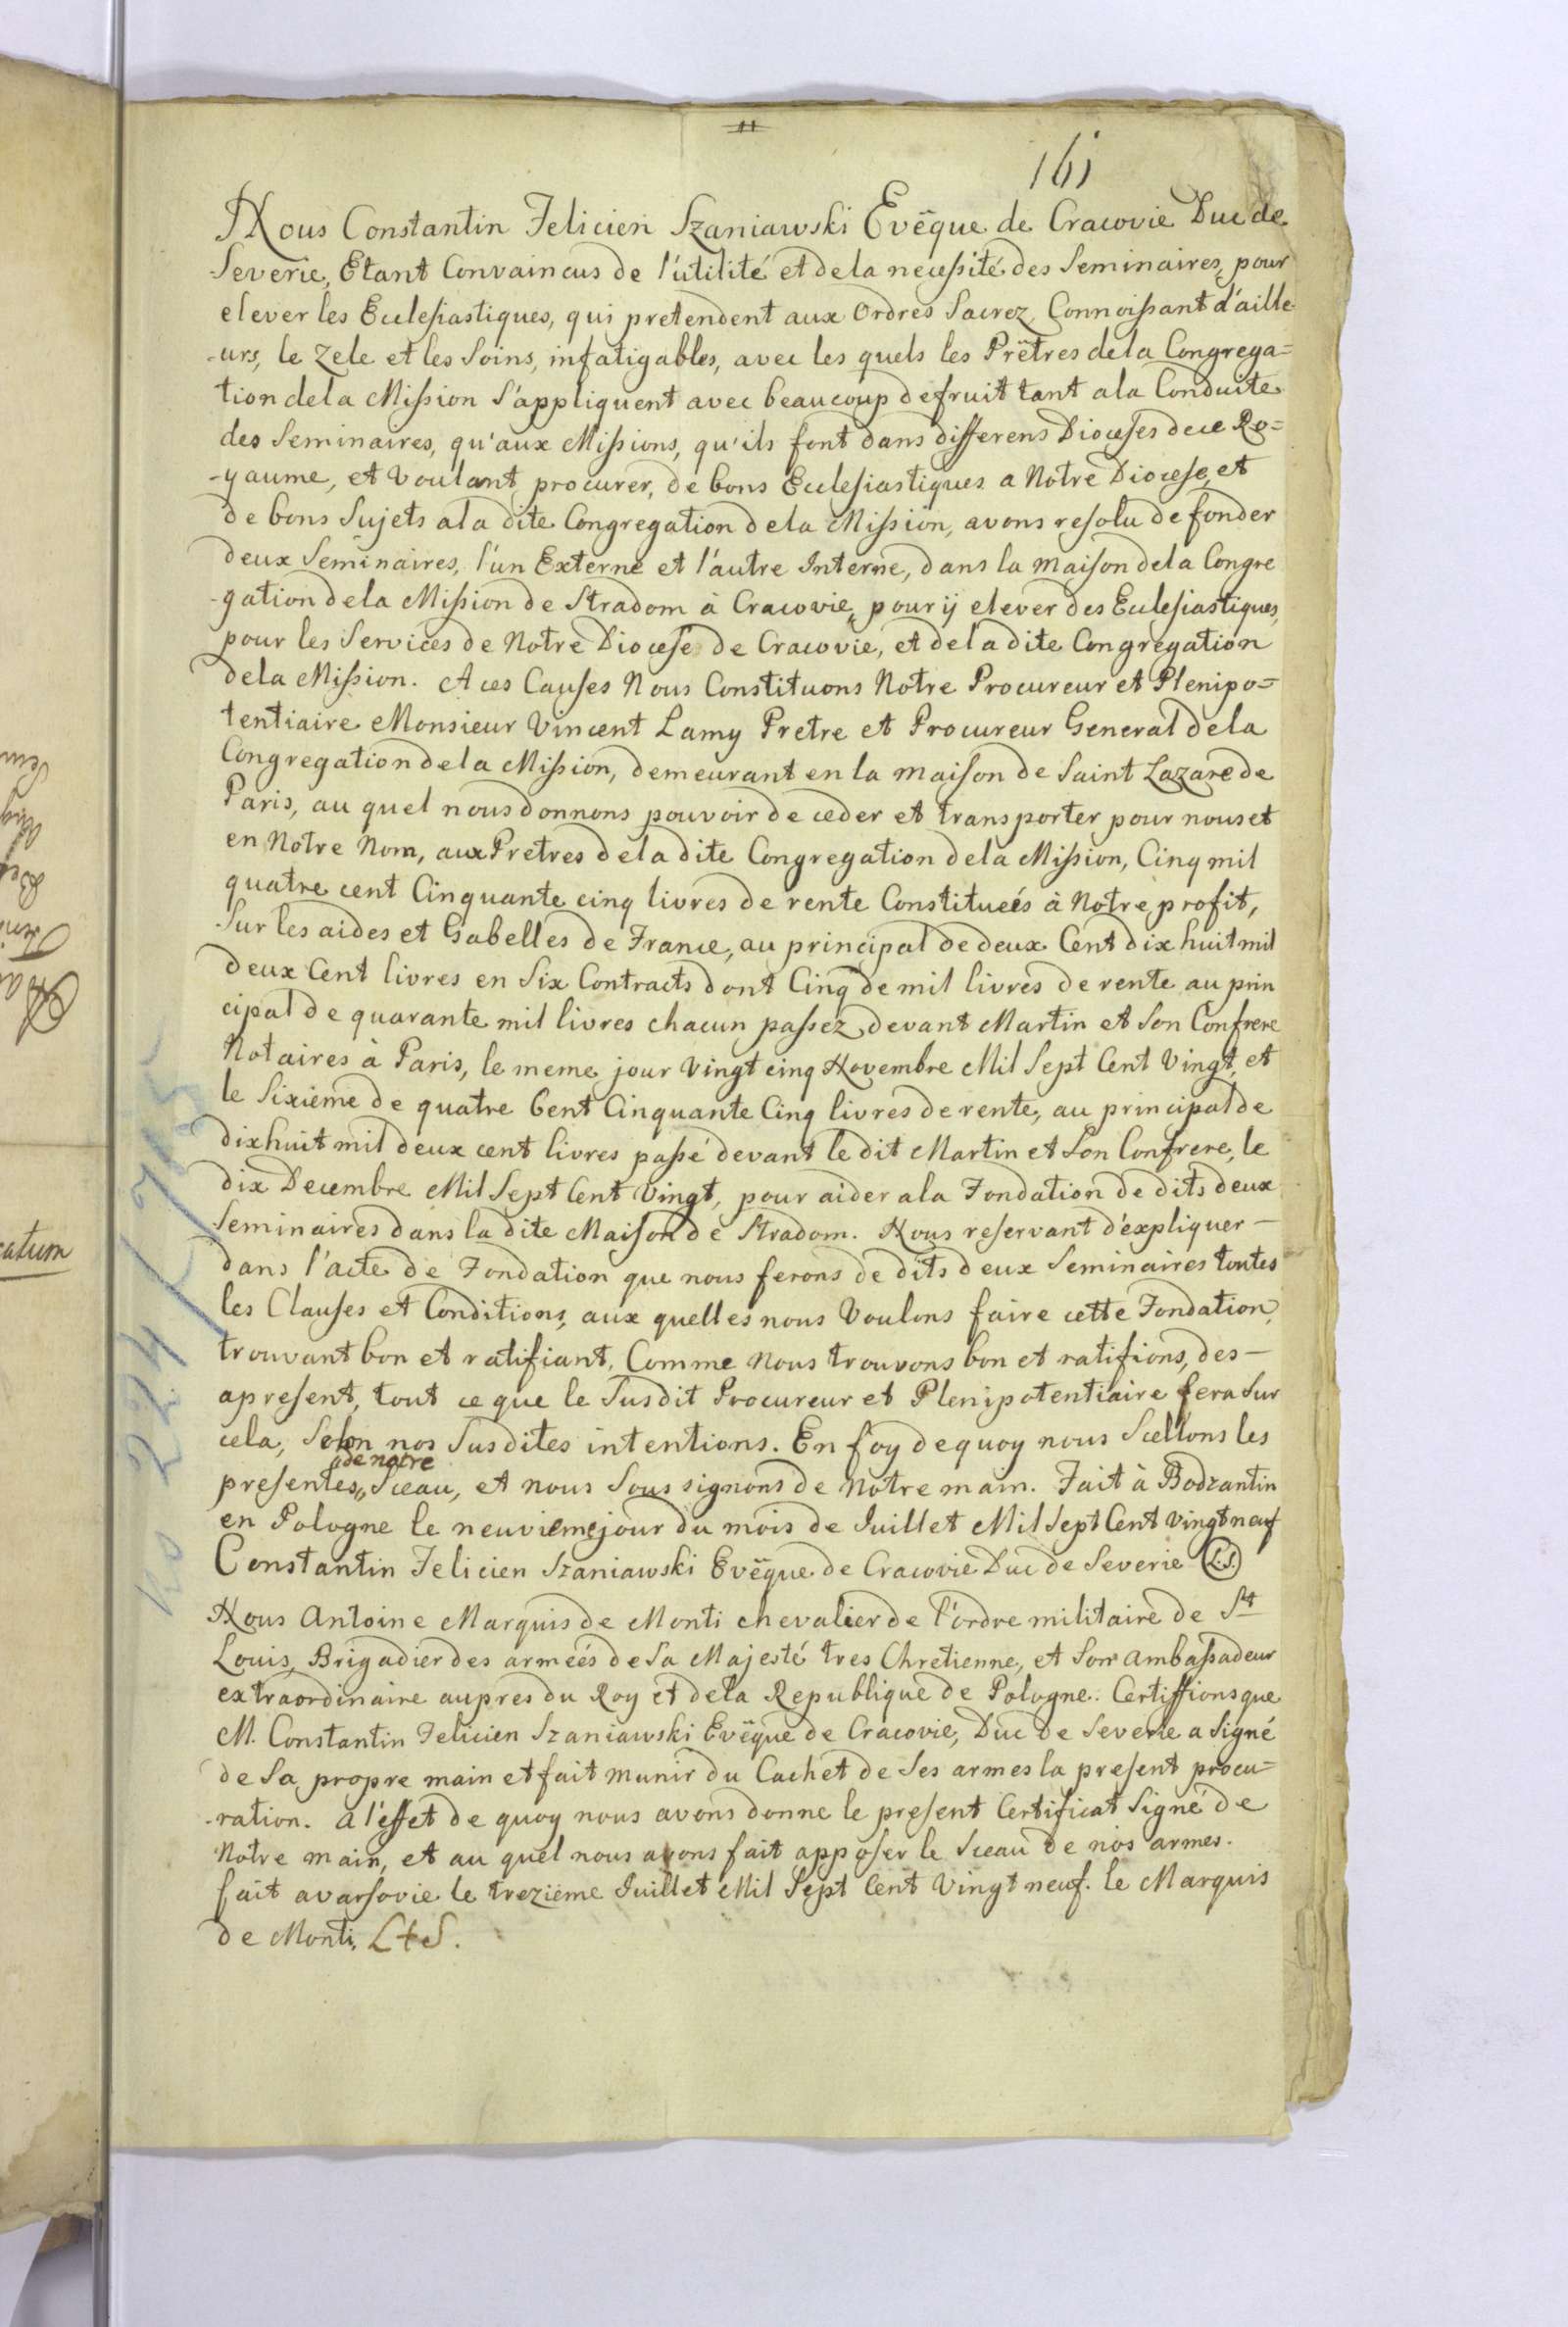 161
Nous Constantin Felicien Szaniawski Evëque de Cracovie Duc de
Severie, Etant Convaincus de l'utilité et dela necessité des Seminaires, pour
elever les Ecclesiastiques, qui pretendent aux Ordres Sacrez, Connoissant d'aille-
-urs, le Zele et les Soins, infatigables, avec les quels les Prëtres dela Congrega=
tion dela Mission S'appliquent avec beaucoup defruit tant ala Conduite
des Seminaires, qu'aux Missions, qu'ils font dans differens Dioceses dece Ro=
-yaume, et voulant procurer, de bons Ecclesiastiques a Notre Diocese, et
de bons Sujets ala dite Congregation dela Mission, avons resolu de fonder
deux Seminaires, l'un Externe et l'autre Interne, dans la maison dela Congre
-gation dela Mission de Stradom à Cracovie, pour ij elever des Ecclesiastiques,
pour les Services de Notre Diocese de Cracovie, et dela dite Congregation
dela Mission. A ces Causes Nous Constituons Notre Procureur et Plenipo=
tentiaire Monsieur Vincent Lamy Pretre et Procureur General dela
Congregation dela Mission, demeurant en la maison de Saint Lazare de
Paris, au quel nous donnons pouvoir de ceder et transporter pour nous et
en Notre Nom, aux Pretres dela dite Congregation dela Mission, Cinq mil
quatre cent Cinquante cinq livres de rente Constitueés à Notre profit,
Sur les aides et Gabelles de France, au principal de deux Cent dix huit mil
deux Cent livres en Six Contracts dont Cinq de mil livres de rente au prin
cipal de quarante mil livres chacun passez devant Martin et Son Confrere
Notaires à Paris, le meme jour vingt cinq Novembre Mil Sept Cent Vingt, et
le Sixieme de quatre Cent Cinquante Cinq livres de rente, au principal de
dixhuit mil deux cent livres passé devant le dit Martin et Son Confrere, le
dix Decembre Mil Sept Cent Vingt, pour aider ala Fondation de dits deux
Seminaires dans la dite Maison de Stradom. Nous reservant d'expliquer -
dans l'acte de Fondation que nous ferons de dits deux Seminaires toutes
les Clauses et Conditions, aux quelles nous Voulons faire cette Fondation,
trouvant bon et ratifiant, Comme nous trouvons bon et ratifions, des -
apresent, tout ce que le Susdit Procureur et Plenipotentiaire fera Sur
cela, Selon nos Susdites intentions. En foy dequoy nous Scellons les
de notre
presentes,, Sceau, et nous Sous signons de Notre main. Fait à Bodzantin
en Pologne le neuvieme jour du mois de Juillet Mil Sept Cent vingt neuf
Constantin Felicien Szaniawski Evëque de Cracovie Duc de Severie L.S.
Nous Antoine Marquis de Monti chevalier de l'ordre militaire de St
Louis, Brigadier des armeés de Sa Majesté tres Chretienne, et Son ambassadeur
extraordinaire aupres du Roy et dela Republique de Pologne. Certiffions que
M. Constantin Felicien Szaniawski Evëque de Cracovie, Duc de Severie a Signé
de Sa propre main et fait munir du Cachet de Ses armes la present procu=
-ration. a l'effet de quoy nous avons donne le present Certificat Signé de
Notre main, et au quel nous avons fait apposer le Sceau de nos armes.
fait avarsovie le trezieme Juillet Mil Sept Cent Vingt neuf. le Marquis
de Monti, L+S.
catum